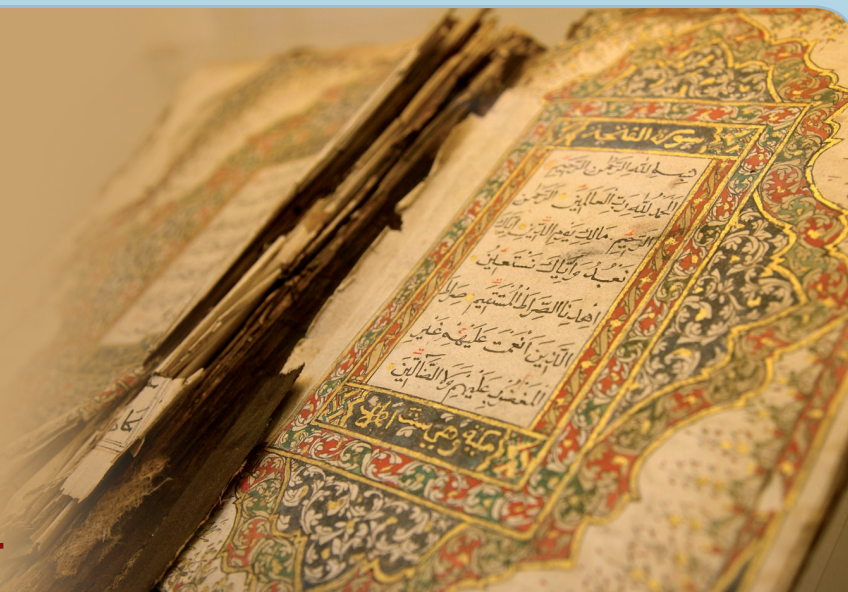 سورة الفاتحة
بِسْمِ اللهِ الرَّحْمٰنِ الرَّحِيْمِ
اَلْحَمْدُ لِلّٰهِ رَبِّ الْعَالَمِيْنَ الرَّحْمٰنِ
الرَّحِيْمِ مَالِكِ يَوْمِ الدِّيْنِ اِيَّاكَ
نَعْبُدُ وَاِيَّاكَ نَسْتَعِيْنُ
اِهْدِنَا الصِّرَاطَ الْمُسْتَقِيْمَ صِرَاطَ
الَّذِيْنَ اَنْعَمْتَ عَلَيْهِمْ غَيْرِ
الْمَغْضُوْبِ عَلَيْهِمْ وَلَا الضَّآلِّيْنَ
مكية وهي